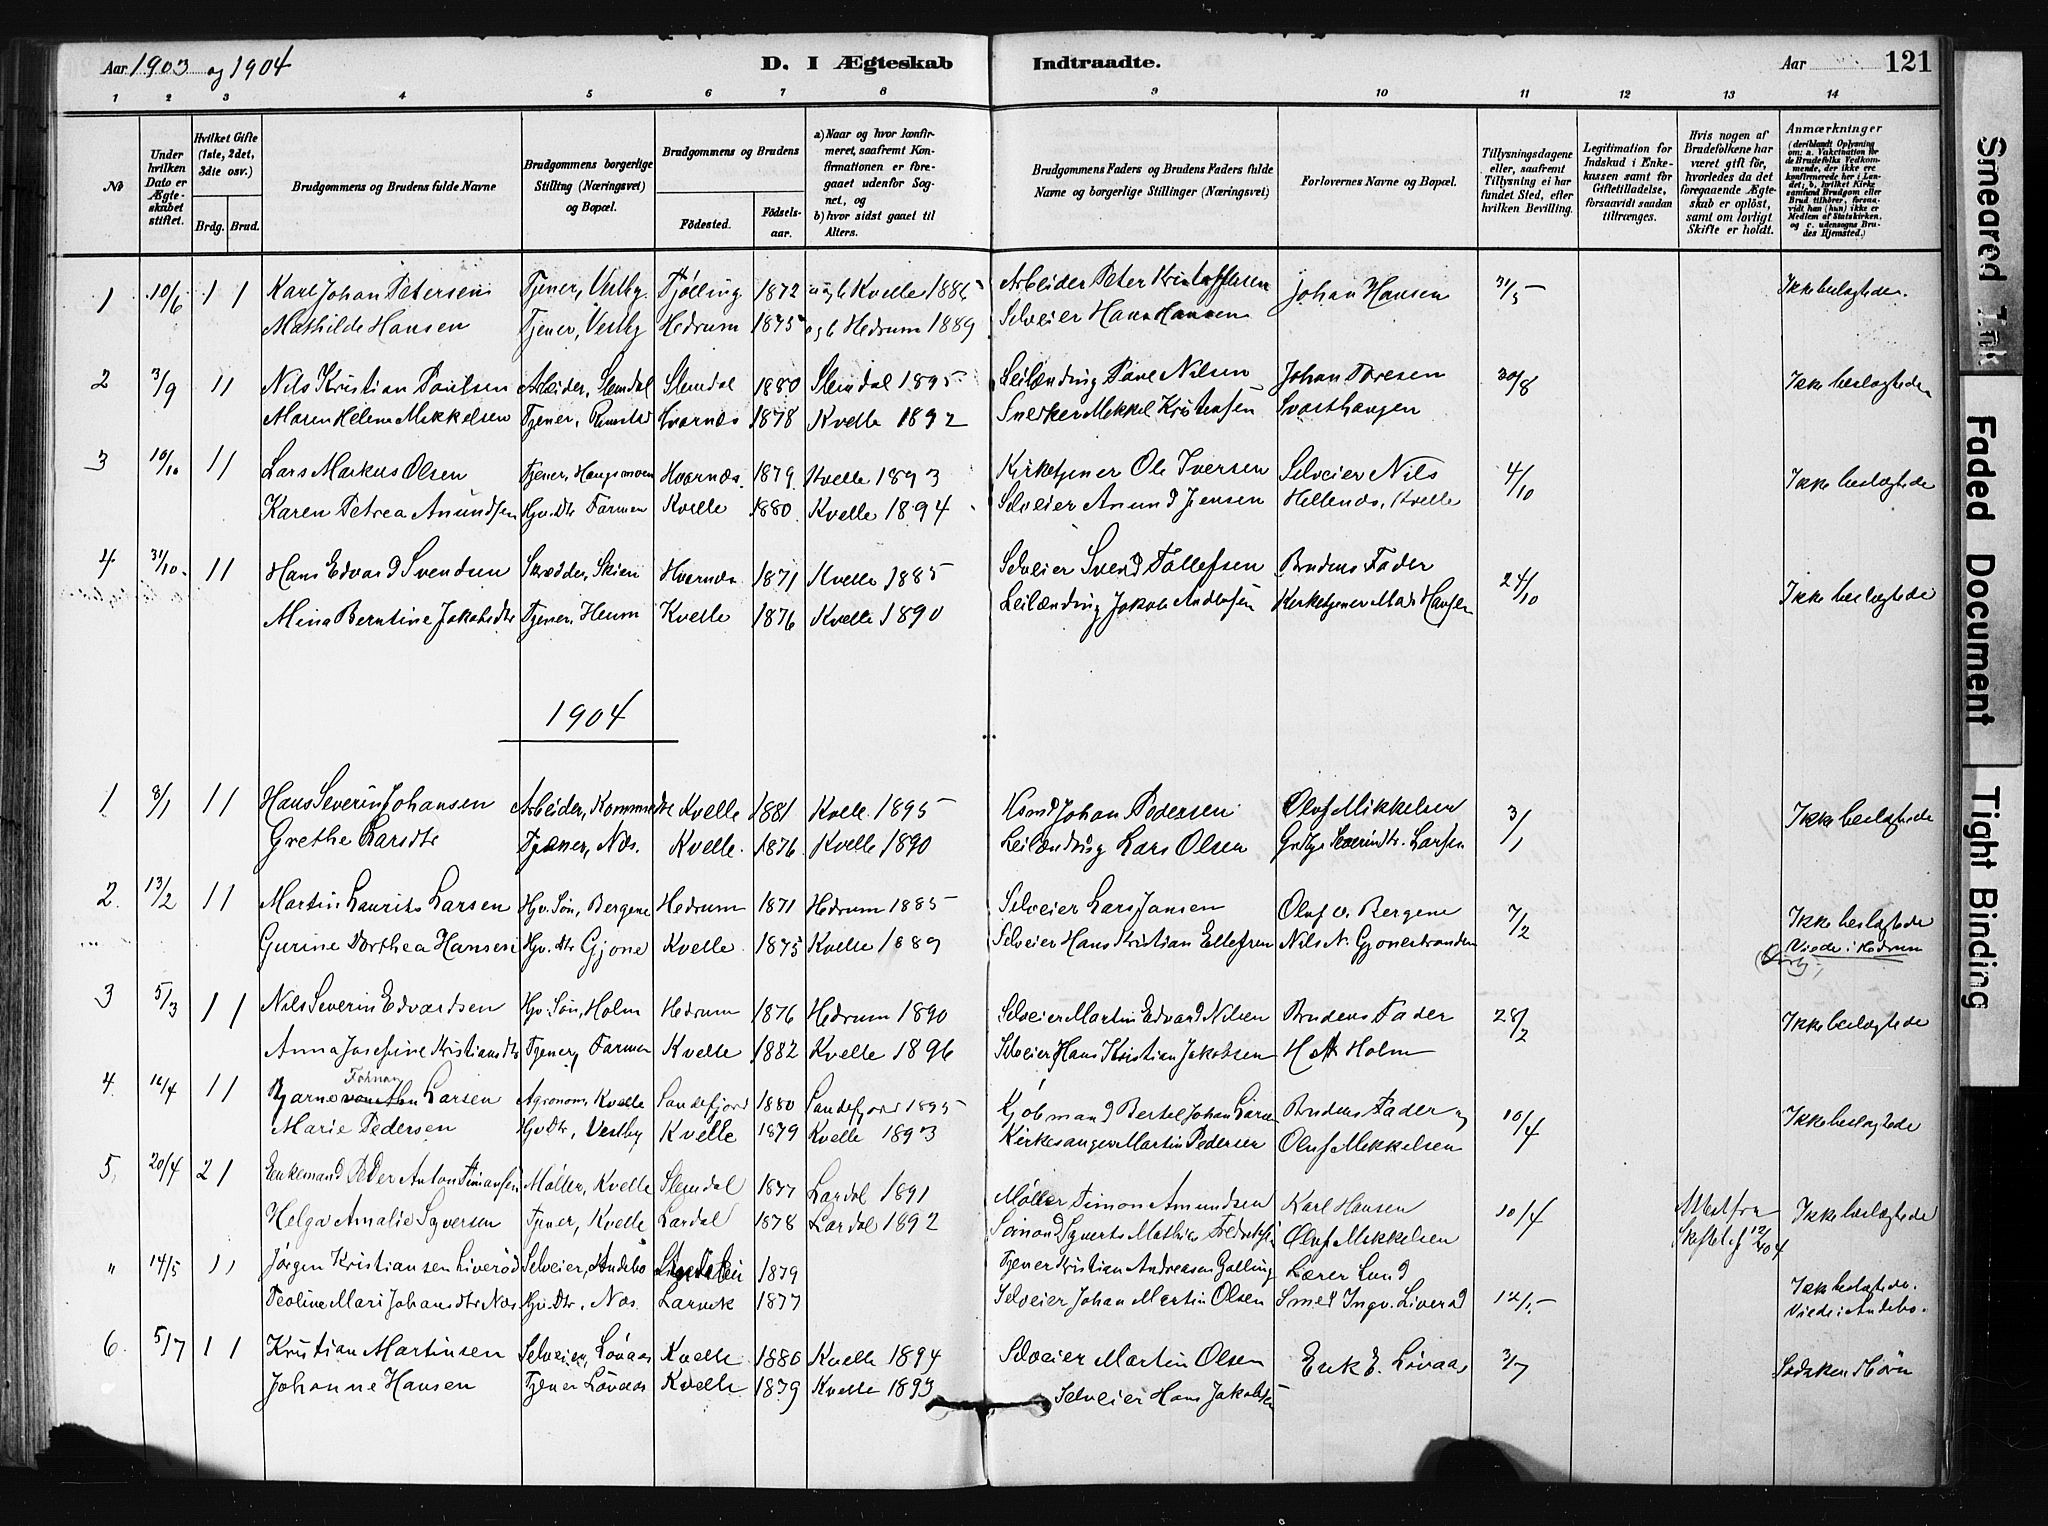 Aar 1903 og 1904
D. I Ægteskab Indtraadte.
Aar 121
1 2 3 4 5 6 7 8 9 10 11 12 13 14
No
Under hvilken Dato er Ægteskabet stiftet.
Hvilket Gifte (1ste, 2det, 3die osv.)
Brdg. Brud.
Brudgommens og Brudens fulde Navne
Brudgommens borgerlige Stilling (Næringsvei) og Bopæl.
Brudgommens og Brudens
Fødested.
Fødselsaar.
a) Naar og hvor konfirmeret, saafremt Konfirmationen er foregaaet udenfor Sognet, og
b) hvor sidst gaaet til Alters.
Brudgommens Faders og Brudens Faders fulde Navne og borgerlige Stillinger (Næringsvei)
Forlovernes Navne og Bopæl.
Tillysningsdagene eller, saafremt Tillysning ei har fundet Sted, efter hvilken Bevilling.
Legitimation for Indskud i Enkekassen samt for Giftetilladelse, forsaavidt saadan tiltrænges.
Hvis nogen af Brudefolkene har været gift før, hvorledes da det foregaaende Ægteskab er opløst, samt om lovligt Skifte er holdt.
Anmærkninger (deriblandt Oplysning om: a. Vakcination for de Brudefolks Vedkommende, der ikke ere konfirmerede her i Landet; b. hvilket Kirkesamfund Brudgom eller Brud tilhører, forsaavidt han (hun) ikke er Medlem af Statskirken, og c. udensogns Brudes Hjemsted.)
1 10/6 1 1 Karl Johan Petersen Tjener, Vestby. Tjølling 1872 Kvelle 1886 Arbeider Peter Kristoffersen Johan Hansen 31/5 Ikke beslægtede.
Mathilde Hansen Tjener, Vestby Hedrum 1875 Hedrum 1889 Selveier Hans Hansen
2 3/9 1 1 Nils Kristian Paulsen Arbeider, Slemdal Slemdal 1880 Slemdal 1895 Leilænding Paul Nilsen Johan Thresen 30/8 Ikke beslægtede
Maren Helene Mikkelsen Tjener, Hvarnes 1878 Kvelle 1892 Snekker Mikkel Kristensen Svarthaugen
3 10/10 1 1 Lars Markus Olsen Tjener, Haugsmoen Hvarnes. 1879 Kvelle 1893 Kirketjener Ole Iversen Selveier Nils 4/10 Ikke beslægtede
Karen Petrea Amundsen Hjv. Dtr Farmen Kvelle 1880 Kvelle 1894 Selveier Amund Jensen Hellenes, Kvelle
4 31/10 1 1 Hans Edvard Svendsen Skrædder, Skien Hvarnes 1871 Kvelle 1885 Selveier Svend Tollefsen Brudens Fader 24/10 Ikke beslægtede
Mina Berntine Jakobsdtr Tjener, Heum Kvelle 1876 Kvelle 1890 Leilænding Jakob Kirketjener Mads Hansen
1904
1 8/1 1 1 Hans Severin Johansen Arbeider, Kvelle 1881 Kvelle 1895 Husmd Johan Pedersen Oluf Mikkelsen 3/1 Ikke beslægtede
Grethe Larsdtr Tjener, Næs. Kvelle. 1876 Kvelle 1890 Leilænding Lars Olsen Larsen
2. 13/2 1 1 Martin Laurits Larsen Hjv. Søn, Bergene Hedrum 1871 Hedrum 1885 Selveier Lars Jansen Oluf O. Bergene 7/2 Ikke beslægtede
Gurine Dorthea Hansen Hjv. Dtr Gjone Kvelle 1875 Kvelle 1889 Selveier Hans Kristian Ellefsen Nils N. Gjonestranden Viede i Hedrum
3 5/3 1 1 Nils Severin Edvardsen Hjv. Søn, Holm Hedrum 1876 Hedrum 1890 Selveier Martin Edvard Nilsen Brudens Fader 28/2 Ikke beslægtede
Anna Josefine Kristiansdtr Tjener, Farmen Kvelle 1882 Kvelle 1896 Selveier Hans Kristian Jakobsen Holm
4. 16/4 1 1 Bjarne Larsen Agronom, Kvelle Sandefjord 1880 Sandefjord 1895 Kjøbmand Bertel Johan Larsen Brudens Fader og 10/4 Ikke beslægtede
Marie Pedersen Hjv Dtr, Vestby Kvelle 1879 Kvelle 1893 Kirkesanger Martin Pedersen Oluf Mikkelsen
5, 20/4 2 1 Enkemand Peder Anton Simonsen Møller, Kvelle Slemdal 1877 Lardal 1891 Møller Simon Amundsen Karl Hansen 10/4 Attest fra Ikke beslægtede
Helga Amalie Syversen Tjener, Kvelle Lardal 1878 Lardal 1892 Sømand Syvert Mathias Fredriksen Oluf Mikkelsen Skiftet 12/4 04
" 14/5 1 1 Jørgen Kristiansen Liverød Selveier, Andebo 1879 Tjener Kristian Andreasen Lærer Lund Ikke beslægtede.
Teoline Mari Johansdtr Næs Hjv. Dtr. Næs. Larvik 1877 Selveier Johan Martin Olsen Smed Ingv. Liverød 12/5 Viede i Andebo.
6 5/7 1 1 Kristian Martinsen Selveier, Løvaas Kvelle 1880 Kvelle 1894 Selveier Martin Olsen Erik E. Løvaas 3/7 Sødskenebørn
Johanne Hansen Tjener Løvaas Kvelle 1879 Kvelle 1893 Selveier Hans Jakobsen
Smeared Ink
Faded Document
Tight Binding